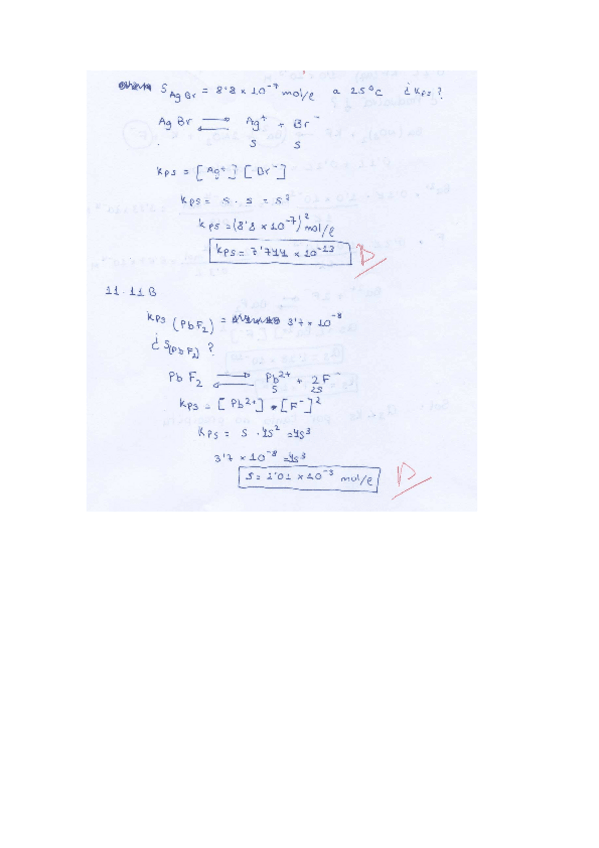 S AgBr = 8'8 x 10⁻⁷ mol/l a 25ºC ¿Kps?
AgBr ⇌ Ag⁺ + Br⁻
S S
Kps = [Ag⁺] [Br⁻]
Kps = s · s = s²
Kps = (8'8 x 10⁻⁷)² mol/l
Kps = 7'744 x 10⁻¹³
11.11 B
Kps (PbF₂) = 3'7 x 10⁻⁸
¿S(PbF₂)?
PbF₂ ⇌ Pb²⁺ + 2F⁻
S 2S
Kps = [Pb²⁺] · [F⁻]²
Kps = s · 4s² = 4s³
3'7 x 10⁻⁸ = 4s³
S = 2'01 x 10⁻³ mol/l